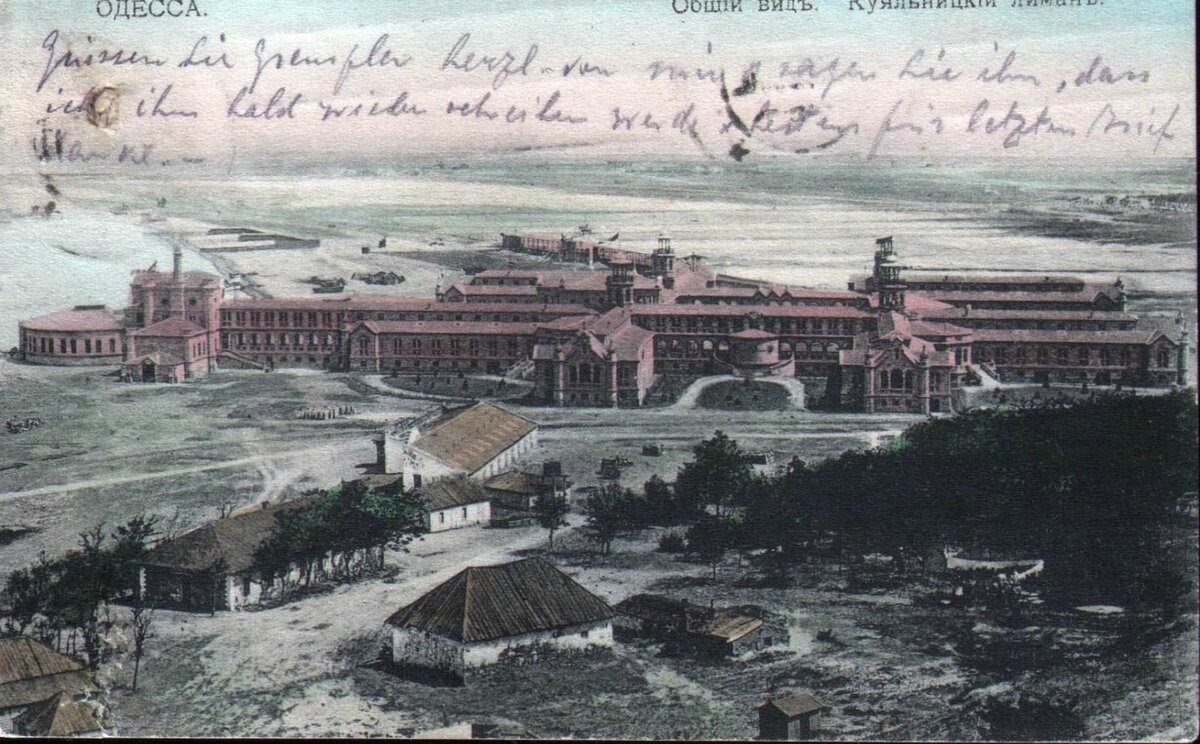 ОДЕССА. Общій видъ. Куяльницкій лиманъ.
Grüssen Sie herzl. von mir sagen Sie ihm, dass
ich ihm bald wieder schreiben werde für letzten Brief